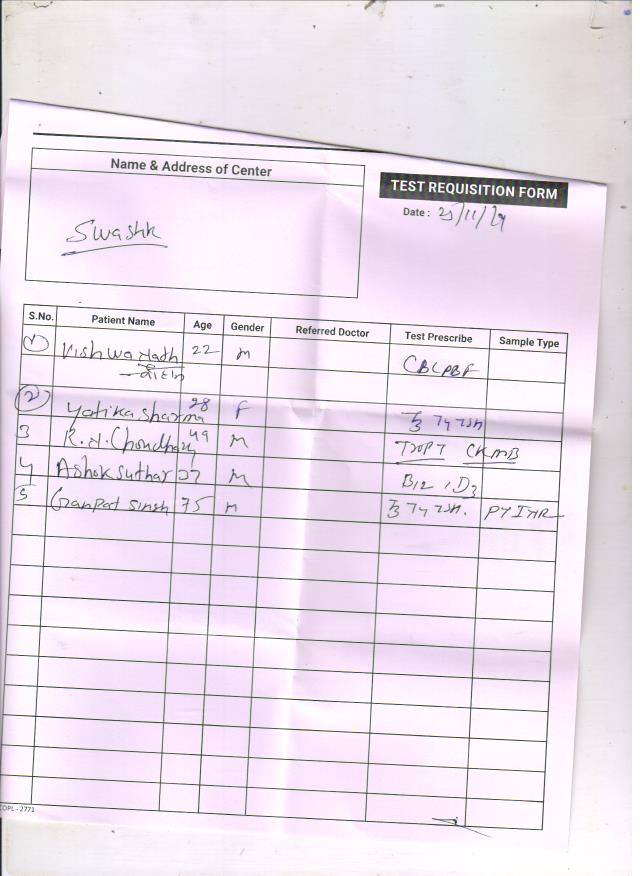 Name & Address of Center
TEST REQUISITION FORM
Date : 25/11/24
Swastik
S.No. Patient Name Age Gender Referred Doctor Test Prescribe Sample Type
1 Vishwanath 22 M CBC, PBF
2 Yatika Sharma 28 F T3 T4 TSH
3 R.N. Choudhary 49 M TROP T CKMB
4 Ashok Suthar 27 M B12, D3
5 Ganpat Singh 75 M T3 T4 TSH. PT INR
COPL - 2771